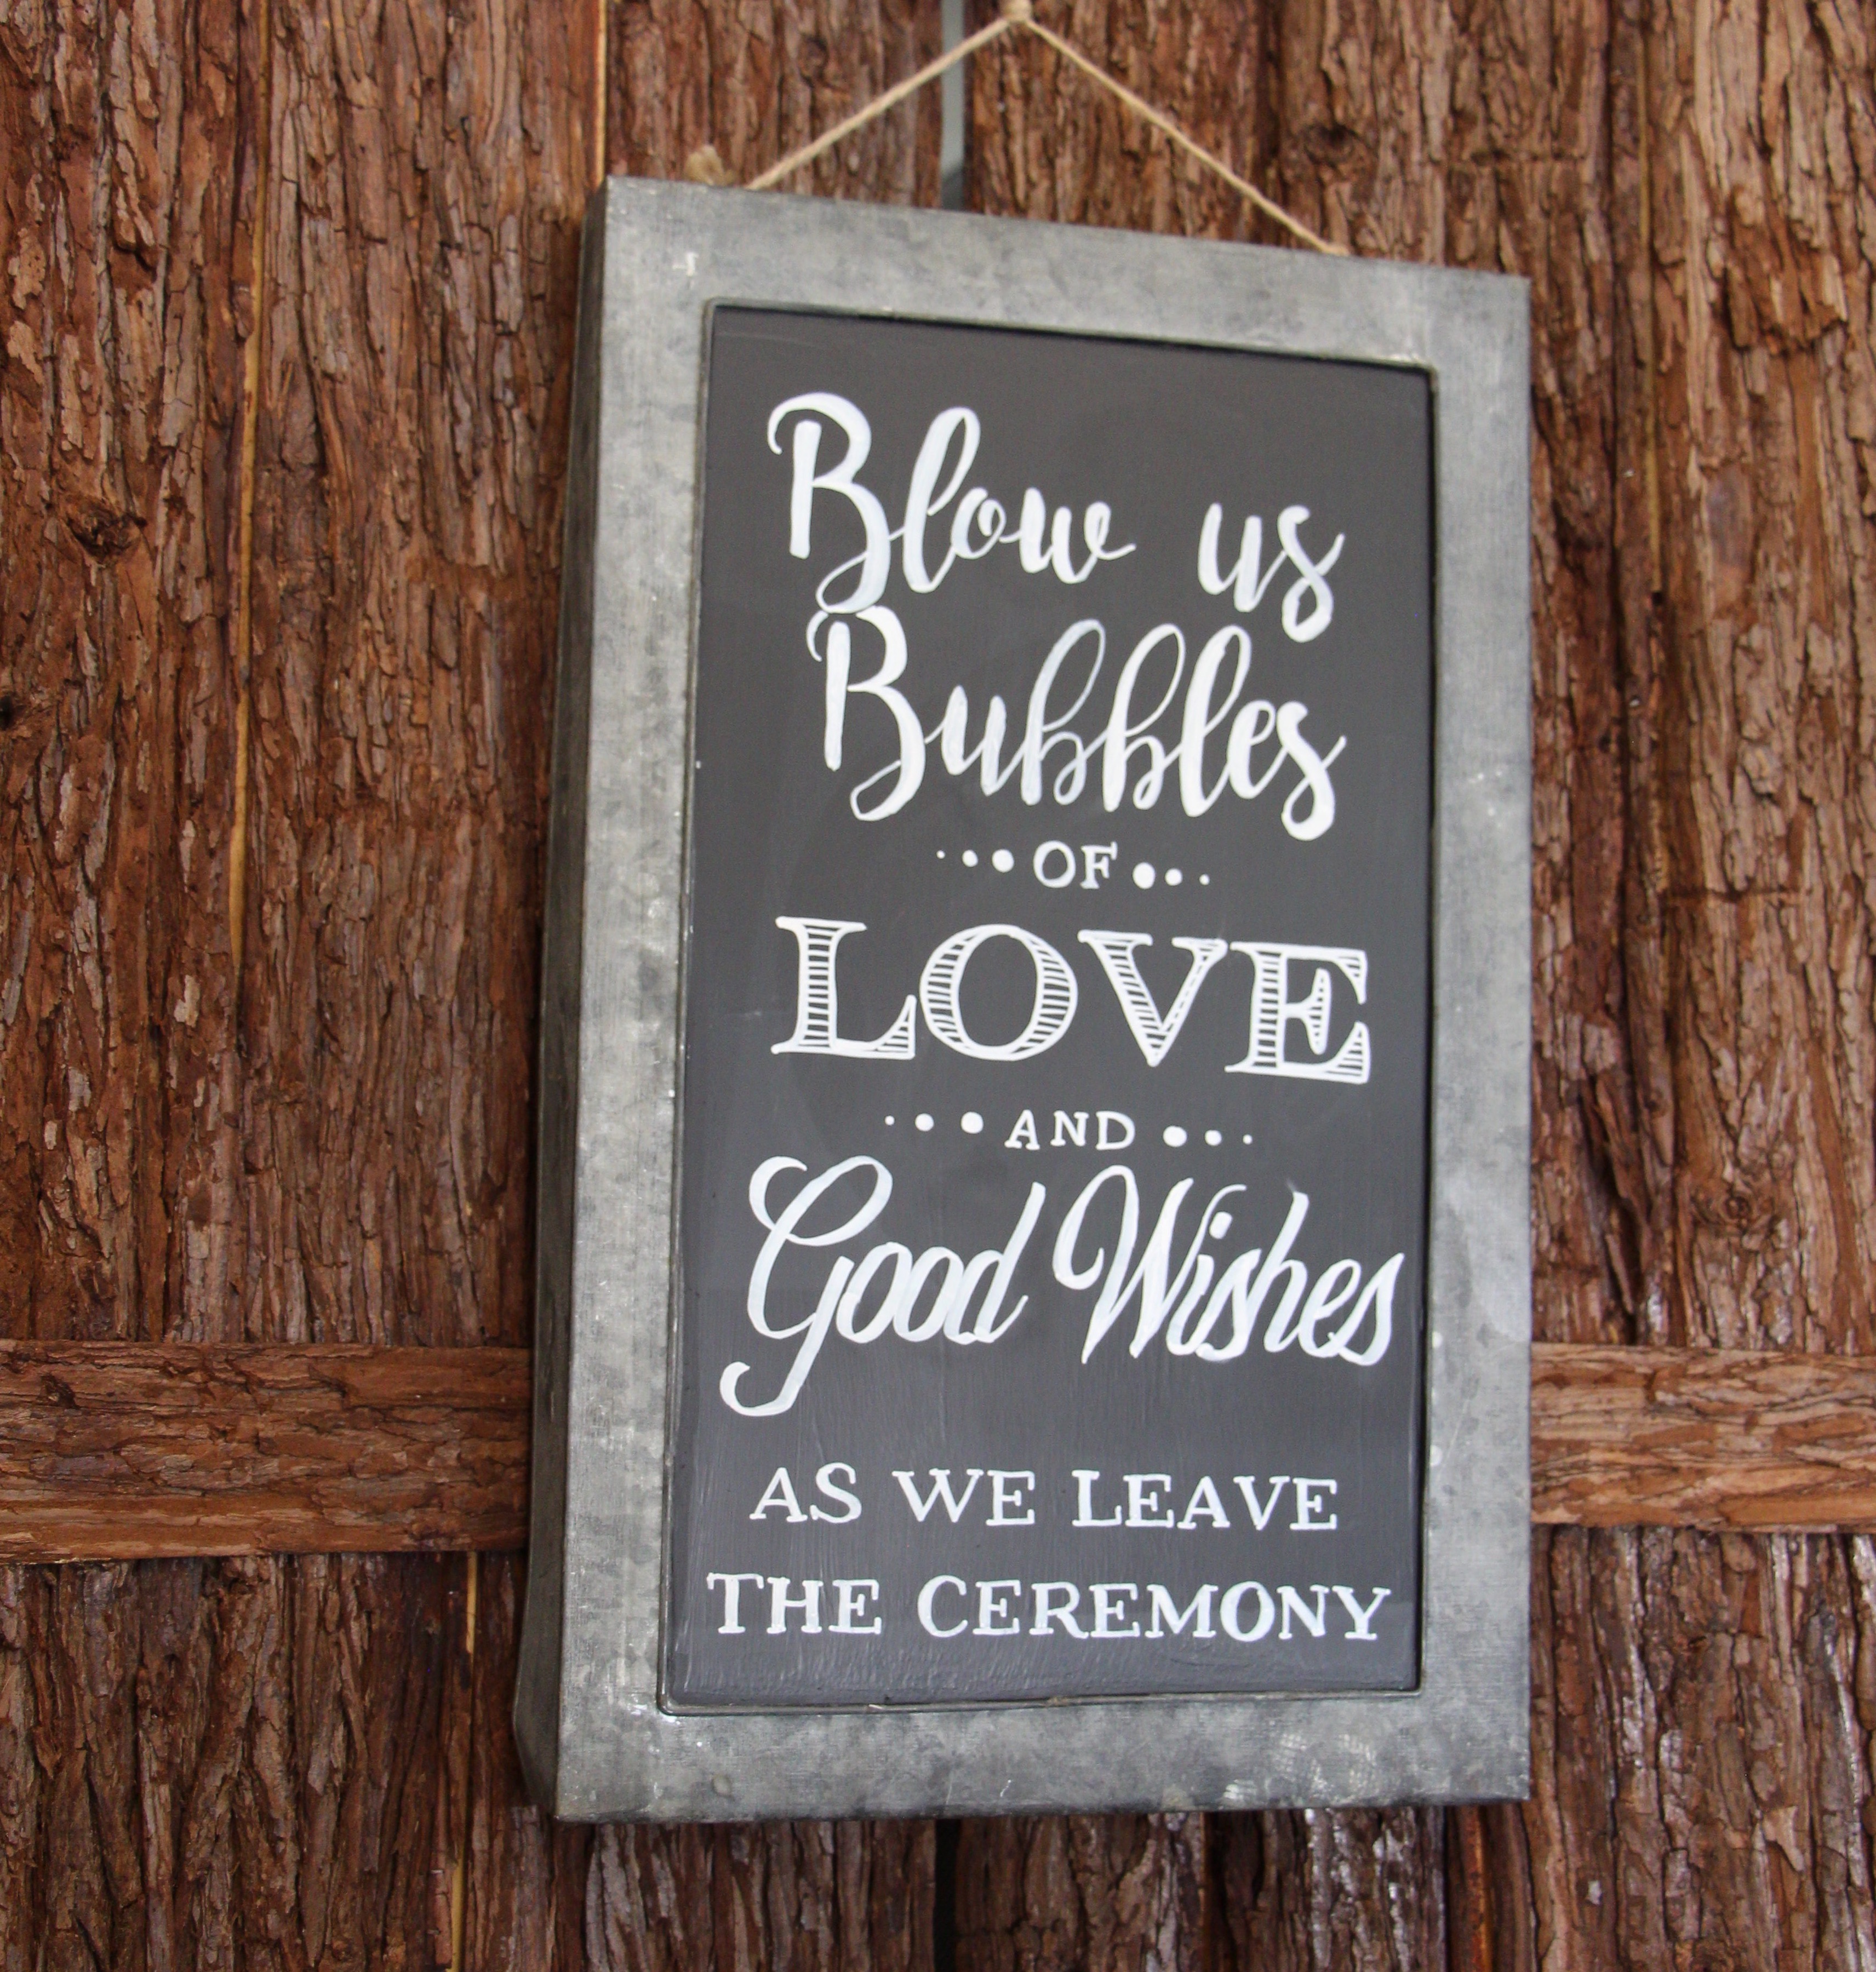 Blow us
Bubbles
...OF...
LOVE
...AND...
Good Wishes
AS WE LEAVE
THE CEREMONY